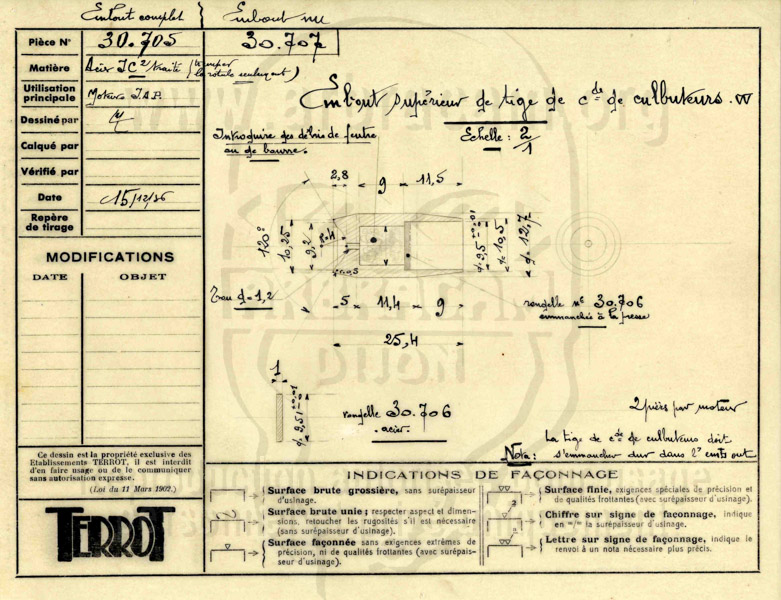 Embout complet
Embout nu
Pièce N° 30.705
30.707
Matière
Acier JC² traité (tremper
la rotule seulement)
Utilisation
principale
Moteurs J.A.P.
Dessiné par
Calqué par
Vérifié par
Date 15/12/36
Repère
de tirage
MODIFICATIONS
DATE OBJET
Embout supérieur de tige de cde de culbuteurs.
Introduire des débris de feutre
ou de bourre.
Echelle : 2/1
2,8 9 11,5
120°
10,25
9,2
Trou d=1,2
5 11,4 9
25,4
d. 10,5
d. 12,7
rondelle n° 30.706
emmanchée à la presse
1
rondelle 30.706
acier.
2 pièces par moteur
Nota : La tige de cde de culbuteurs doit
s'emmancher dur dans l'embout
Ce dessin est la propriété exclusive des
Etablissements TERROT, il est interdit
d'en faire usage ou de le communiquer
sans autorisation expresse.
(Loi du 11 Mars 1902.)
TERROT
INDICATIONS DE FAÇONNAGE
Surface brute grossière, sans surépaisseur
d'usinage.
Surface brute unie ; respecter aspect et dimen-
sions, retoucher les rugosités s'il est nécessaire
(sans surépaisseur d'usinage).
Surface façonnée sans exigences extrêmes de
précision, ni de qualités frottantes (avec surépais-
seur d'usinage).
Surface finie, exigences spéciales de précision et
de qualités frottantes (avec surépaisseur d'usinage).
Chiffre sur signe de façonnage, indique
en m/m la surépaisseur d'usinage.
Lettre sur signe de façonnage, indique le
renvoi à un nota nécessaire plus précis.